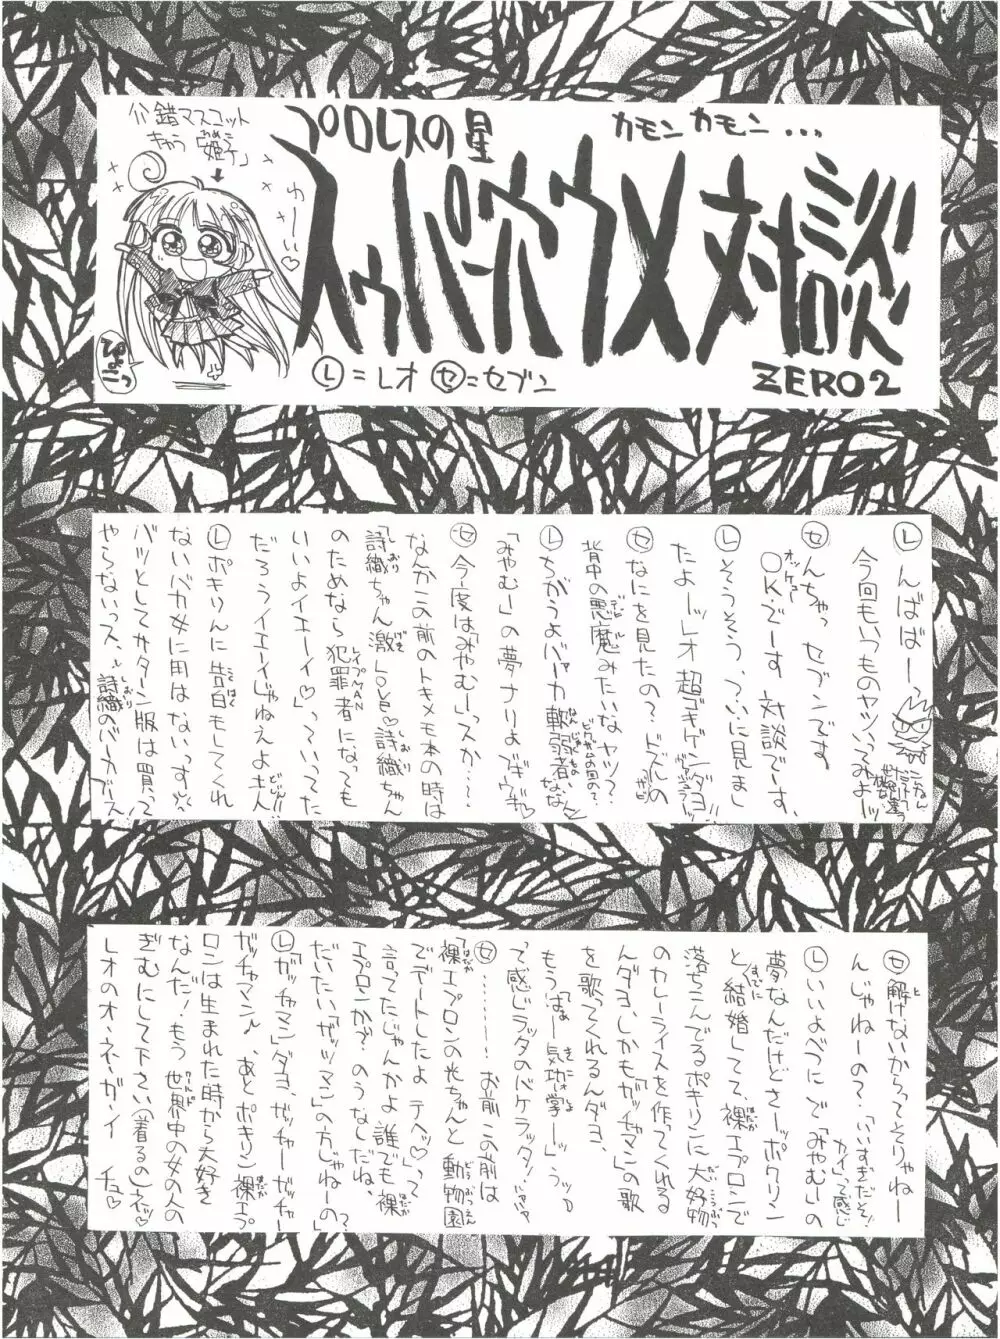 プロレスの星
カモンカモン...
スゥパーウメ対談
ZERO2
錯マスコット
きゃう「姫子」
ゆーい♡
ぴょこっ
Ⓛ=レオ ㋝=セブン
Ⓛ んばばーっ
今回もいつものヤツいってみよーッ
㋝ んちゃっ セブンです
OKでーす 対談でーす、
Ⓛ そうそう、ついに見まし
たよーッレオ超ゴキゲンダヨ!!
㋝ なにを見たの? ドズルの
背中の悪魔みたいなヤツ?
Ⓛ ちがうよバァーカ軟弱者、
「みやむー」の夢ナリよ
㋝ 今度は「みやむー」スか……
なんかこの前のトキメモ本の時は
「詩織ちゃん激LOVE♡詩織ちゃん
のためなら犯罪者になっても
いいよイエーイ♡」っていってた
だろうイエーイじゃねえよキミ
Ⓛ ポキりんに告白もしてくれ
ないバカ女に用はないっす
バッとしてサターン版は買って
やらないっス、詩織のバーカブース
㋝ 解けないからってそりゃねー
んじゃねーの?「いいすぎだぞ!
カイ」って感じ
Ⓛ いいよべつにで「みやむー」の
夢なんだけどさーッポクリン
と結婚してて、裸エプロンで
落ちこんでるポキりんに大好物
のカレーライスを作ってくれる
んダヨ、しかもガッチャマンの歌
を歌ってくれるんダヨ、
もう「はぁー気功掌ーッ」ラッ
て感じラッタのバケラッタ!
㋝ ………… お前この前は
「裸エプロンの光ちゃんと動物園
でデートしたよ テヘッ♡」って
言ってたじゃんかよ誰でも裸
エプロンか?のうなしだね、
だいたい「ガッツマン」の方じゃねーの?」
Ⓛ 「ガッチャマン」ダヨ、ガッチャーガッチャー
ガッチャマン♪ あとポキリン裸エプ
ロンは生まれた時から大好き
なんだ!もう世界中の女の人の
ぎむにして下さい(着るの)ネッ♡
レオのオ・ネ・ガ・イ チュ♡